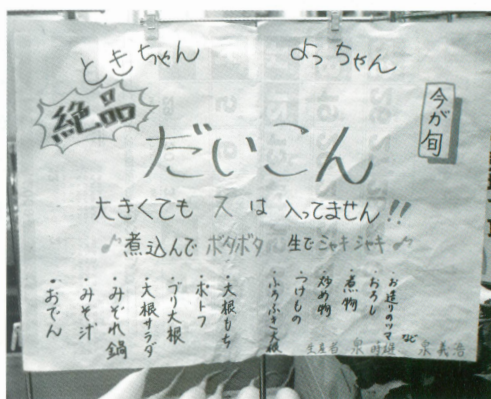 ときちゃん よっちゃん
絶品
今が旬
だいこん
大きくても ス は 入ってません!!
♪煮込んで ボタボタ 生で シャキシャキ♪
・お造りのツマ
など
・おろし
・煮物
・炒め物
・つけもの
・ふろふき大根
・大根もち
・ポトフ
・ブリ大根
・大根サラダ
・みぞれ鍋
・みそ汁
・おでん
生産者 泉 泉 義浩